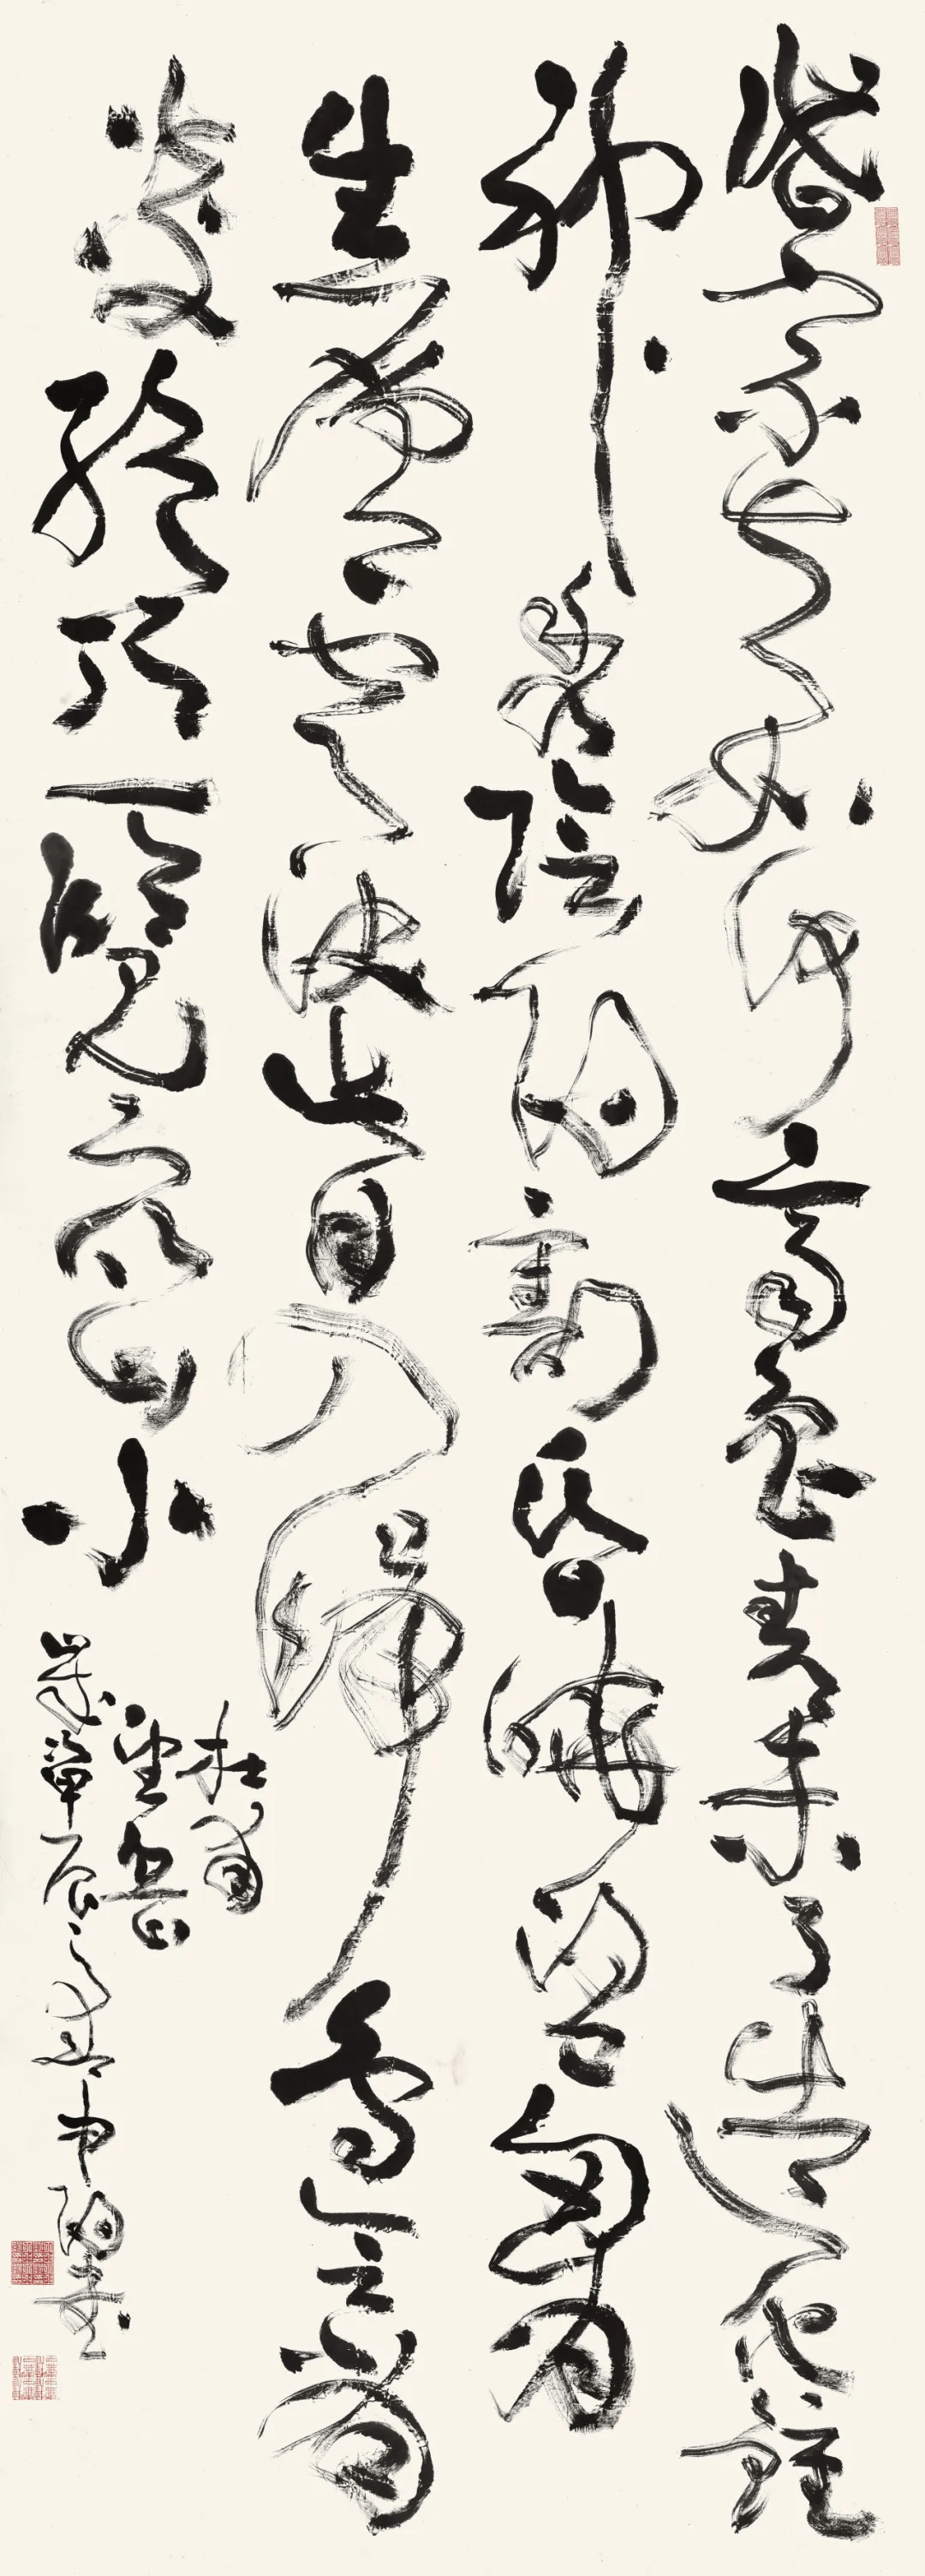 岱宗夫如何齊魯青未了造化鍾
神秀陰陽割昏曉盪胸
生層雲決眥入歸鳥會當
凌絕頂一覽衆山小
杜甫
望岳
歲在甲辰之春 書